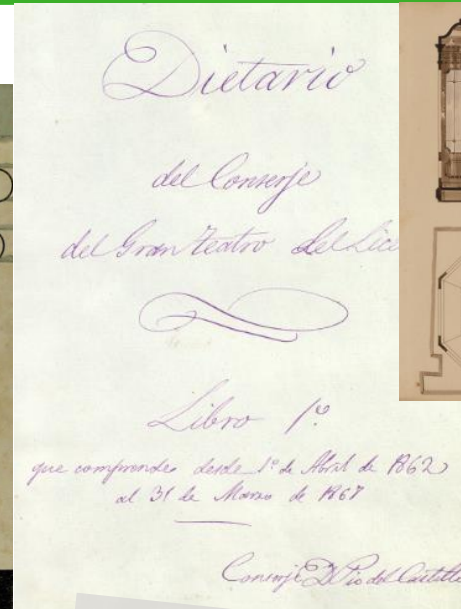 Dietario
del Conserje
del Gran Teatro del Lice
Libro 1º
que comprende desde 1º de Abril de 1862
al 31 de Marzo de 1867
Conserje D. Pio del Castillo